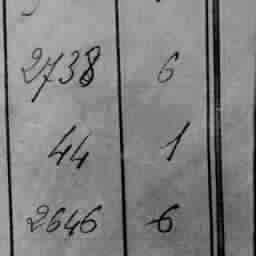 2738 6
44 1
2646 6